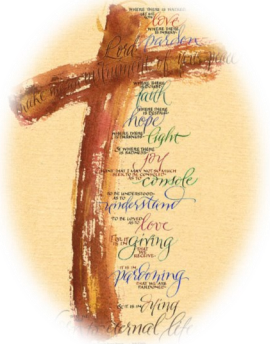 Lord
make me an instrument of your peace
WHERE THERE IS HATRED
LET ME SOW
love
WHERE THERE
IS INJURY
pardon
WHERE THERE
IS DOUBT
faith
WHERE THERE
IS DESPAIR
hope
WHERE THERE
IS DARKNESS
light
& WHERE THERE
IS SADNESS
joy
GRANT THAT I MAY NOT SO MUCH
SEEK TO BE CONSOLED
AS TO
console
TO BE UNDERSTOOD
AS TO
understand
TO BE LOVED
AS TO
love
FOR IT
IS IN
giving
THAT
WE
RECEIVE
IT IS IN
pardoning
THAT WE ARE
PARDONED
IT IS IN
dying
eternal life